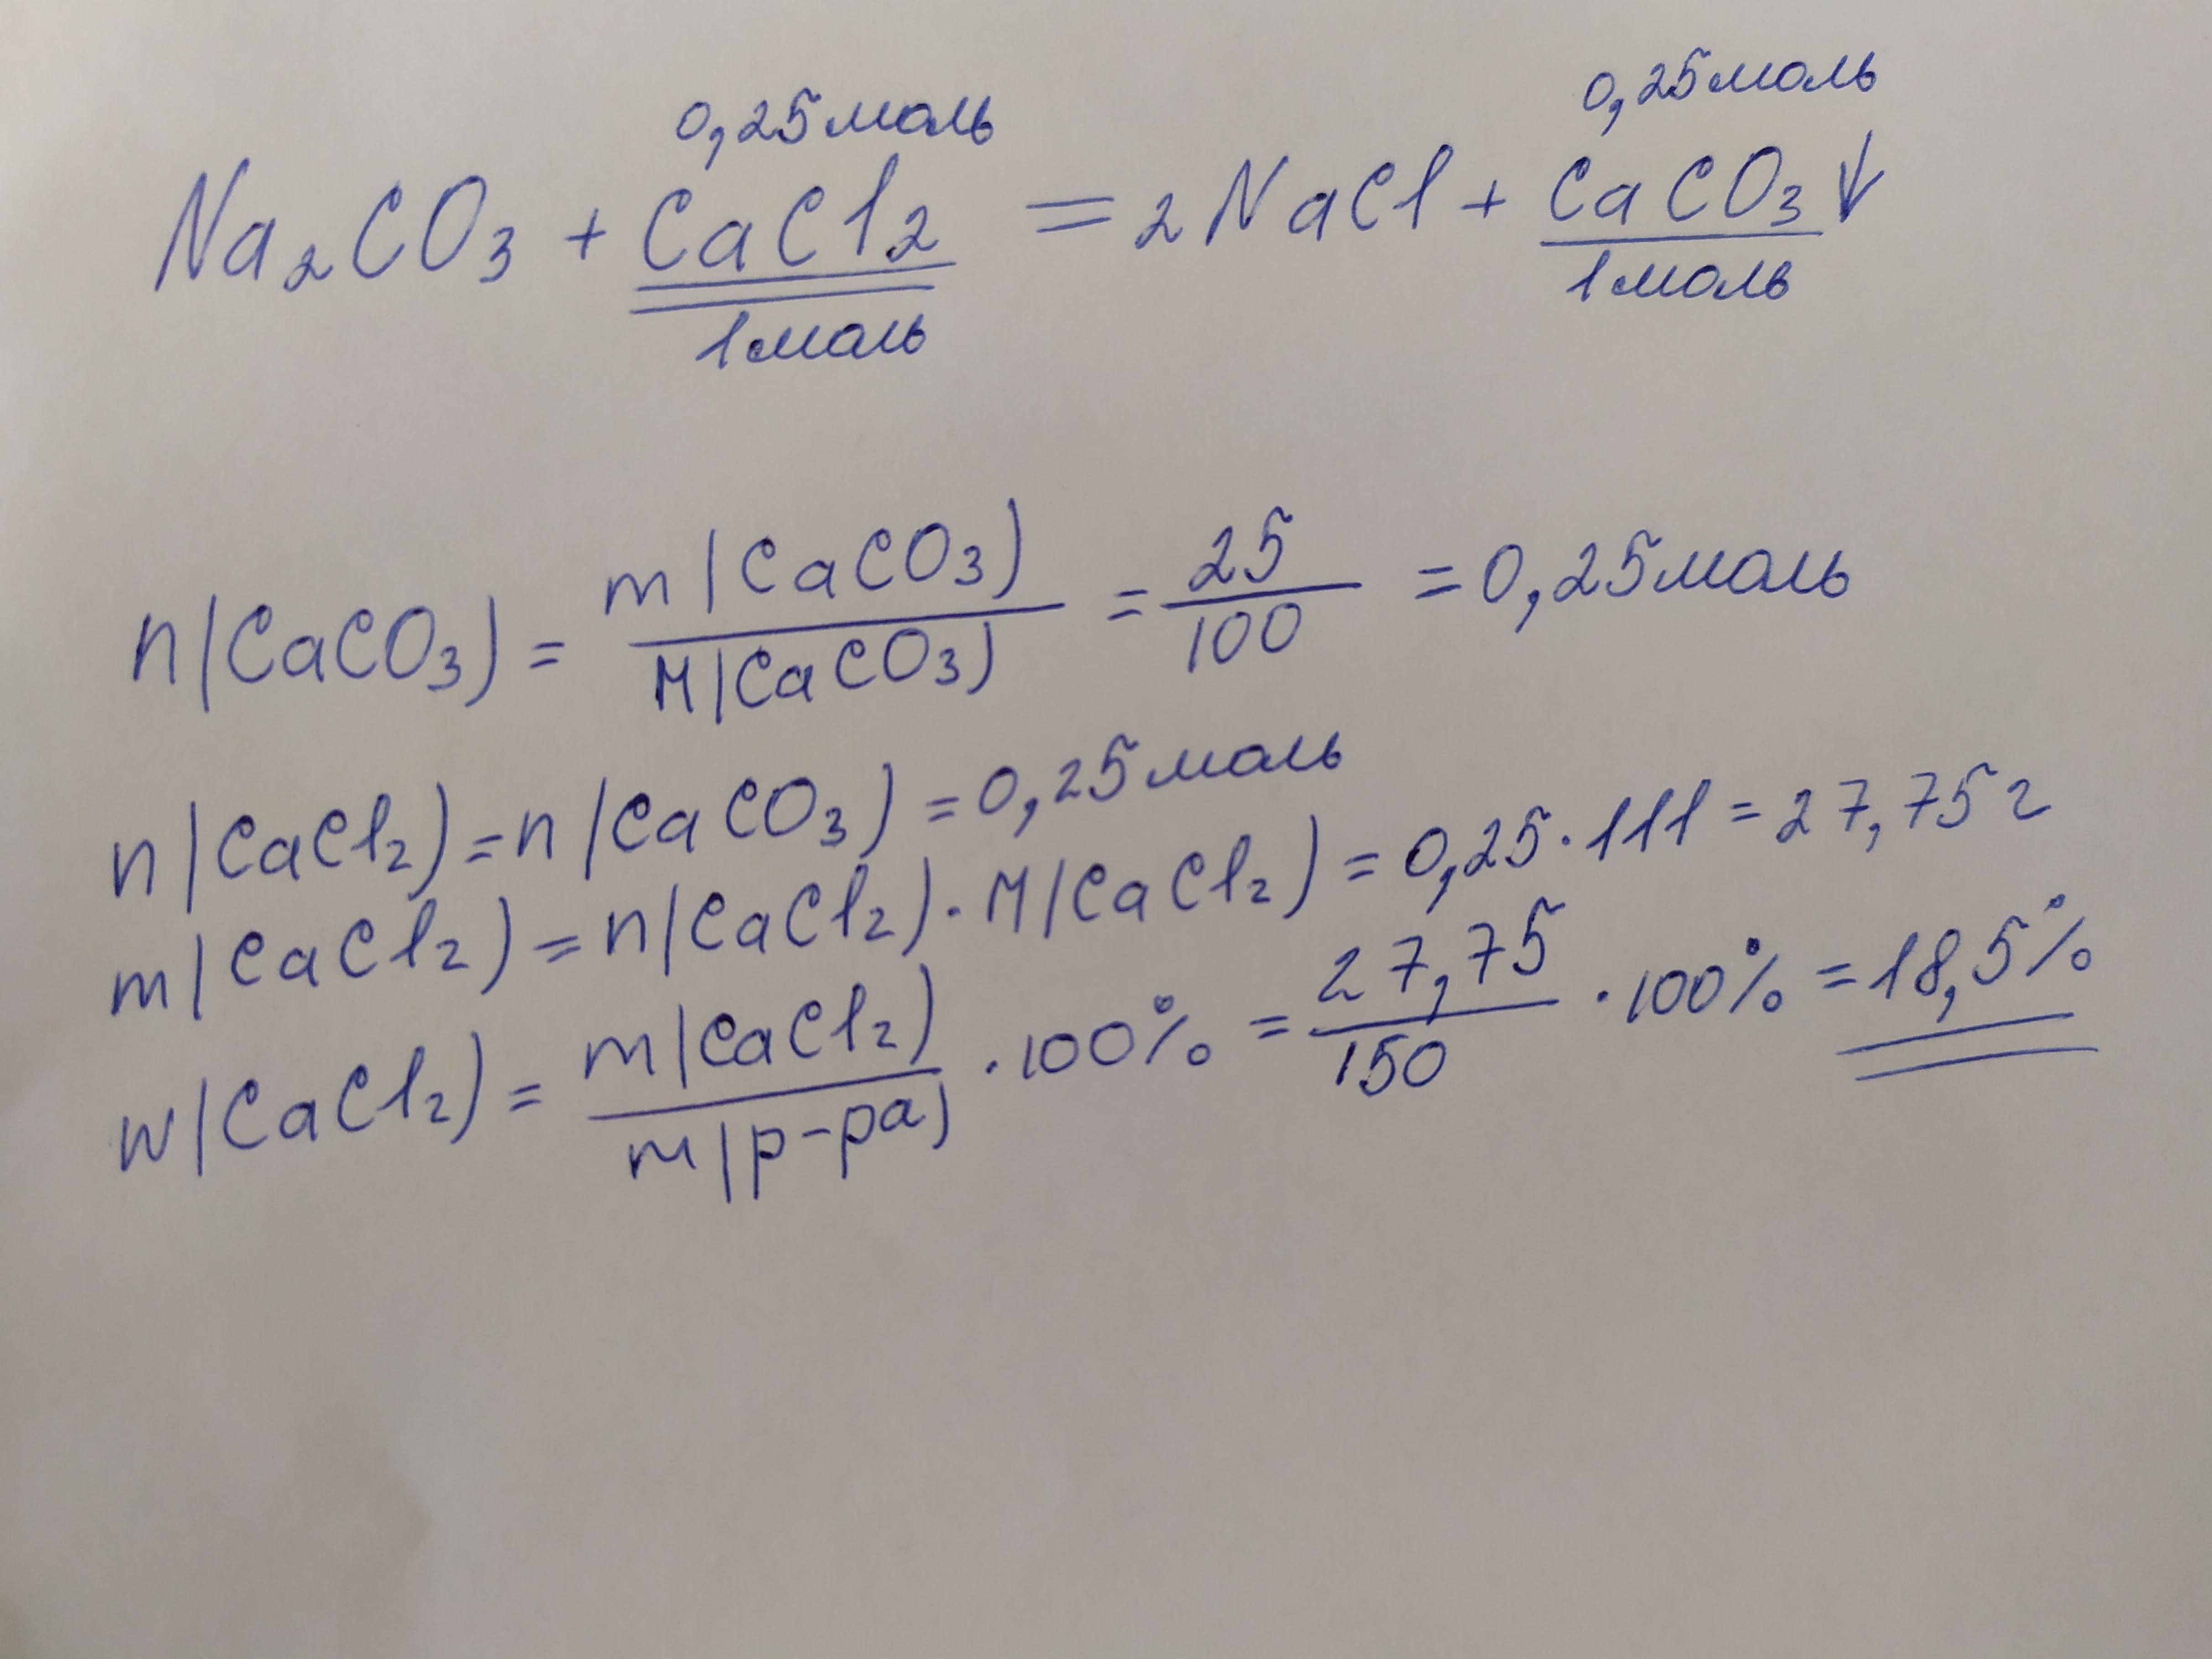 0,25моль 0,25моль
Na₂CO₃ + CaCl₂ = 2NaCl + CaCO₃↓
1моль 1моль
n(CaCO₃) = m(CaCO₃)/M(CaCO₃) = 25/100 = 0,25моль
n(CaCl₂) = n(CaCO₃) = 0,25моль
m(CaCl₂) = n(CaCl₂)·M(CaCl₂) = 0,25·111 = 27,75г
w(CaCl₂) = m(CaCl₂)/m(р-ра) ·100% = 27,75/150 ·100% = 18,5%